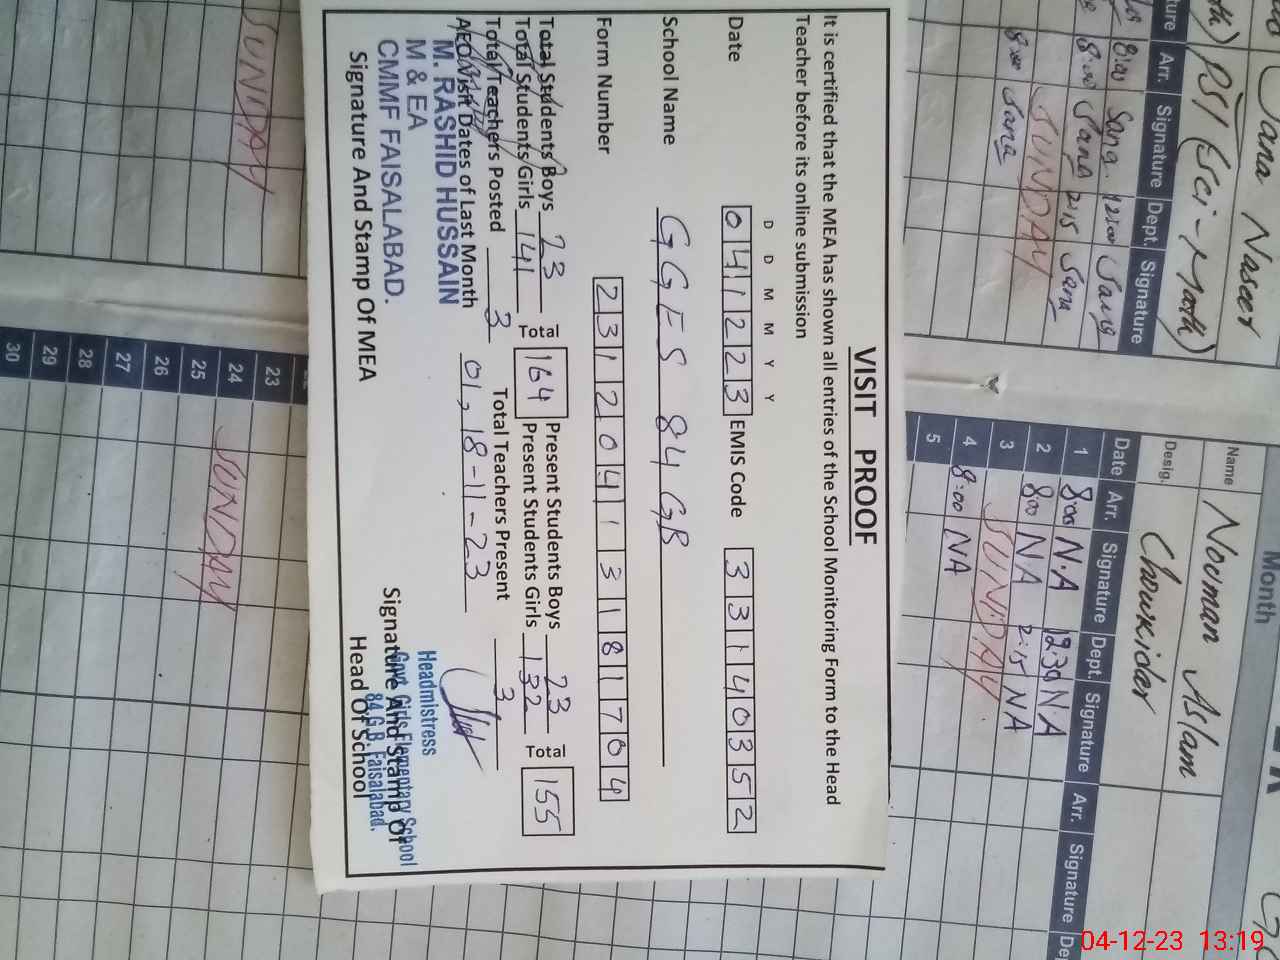 VISIT PROOF
It is certified that the MEA has shown all entries of the School Monitoring Form to the Head
Teacher before its online submission
D D M M Y Y
Date 041223 EMIS Code 33140352
School Name GGES 84 GB
Form Number 23120413181704
Total Students Boys 23 Total 164 Present Students Boys 23 Total 155
Total Students Girls 141 Present Students Girls 132
Total Teachers Posted 3 Total Teachers Present 3
AEO Visit Dates of Last Month 01, 18-11-23
M. RASHID HUSSAIN
M & EA
CMMF FAISALABAD.
Signature And Stamp Of MEA
Headmistress
Govt. Girls Elementary School
84 G.B. Faisalabad.
Signature And Stamp Of
Head Of School
Sana Naseer
PST (Sci-Math)
Arr. Signature Dept. Signature
8:00 Sana 12:00 Sana
8:00 Sana 2:15 Sana
SUNDAY
8:00 Sana
Month
Name Nouman Aslam
Desig. Chowkidar
Date Arr. Signature Dept. Signature Arr. Signature
1 8:00 N.A 12:30 NA
2 8:00 NA 2:15 NA
3 SUNDAY
4 8:00 NA
5
23
24 SUNDAY
25
26
27
28
29
30
SUNDAY
04-12-23 13:19